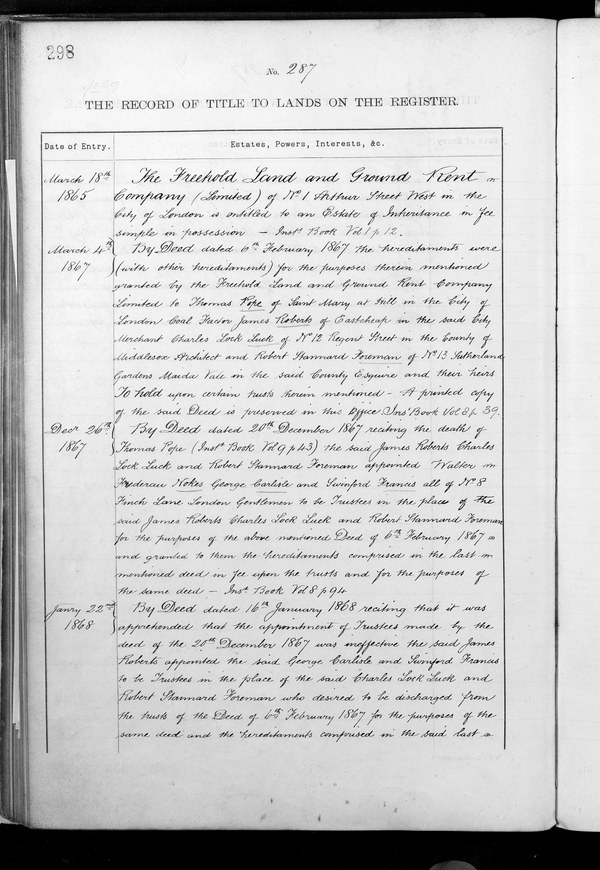 298
No. 287
THE RECORD OF TITLE TO LANDS ON THE REGISTER.
Date of Entry.
Estates, Powers, Interests, &c.
March 18th
1865
The Freehold Land and Ground Rent
Company (Limited) of No 1 Arthur Street West in the
City of London is entitled to an Estate of Inheritance in fee
simple in possession — Inst. Book Vol 1 p 12.
March 4th
1867
By Deed dated 6th February 1867 the hereditaments were
(with other hereditaments) for the purposes therein mentioned
granted by the Freehold Land and Ground Rent Company
Limited to Thomas Pope of Saint Mary at Hill in the City of
London Coal Factor James Roberts of Eastcheap in the said City
Merchant Charles Lock Luck of No 12 Regent Street in the County of
Middlesex Architect and Robert Stannard Foreman of No 13 Sutherland
Gardens Maida Vale in the said County Esquire and their heirs
To hold upon certain trusts therein mentioned - A printed copy
of the said Deed is preserved in this Office Ins. Book Vol 8 p 39.
Decr 26th
1867
By Deed dated 20th December 1867 reciting the death of
Thomas Pope (Inst. Book Vol 9 p 43) the said James Roberts Charles
Lock Luck and Robert Stannard Foreman appointed Walter
Nokes George Carlisle and Swinford Francis all of No 8
Finch Lane London Gentlemen to be Trustees in the place of the
said James Roberts Charles Lock Luck and Robert Stannard Foreman
for the purposes of the above mentioned Deed of 6th February 1867
and granted to them the hereditaments comprised in the last
mentioned deed in fee upon the trusts and for the purposes of
the same deed — Inst. Book Vol 8 p 94
Janry 22nd
1868
By Deed dated 16th January 1868 reciting that it was
apprehended that the appointment of Trustees made by the
deed of the 20th December 1867 was ineffective the said James
Roberts appointed the said George Carlisle and Swinford Francis
to be Trustees in the place of the said Charles Lock Luck and
Robert Stannard Foreman who desired to be discharged from
the trusts of the Deed of 6th February 1867 for the purposes of the
same deed and the hereditaments comprised in the said last